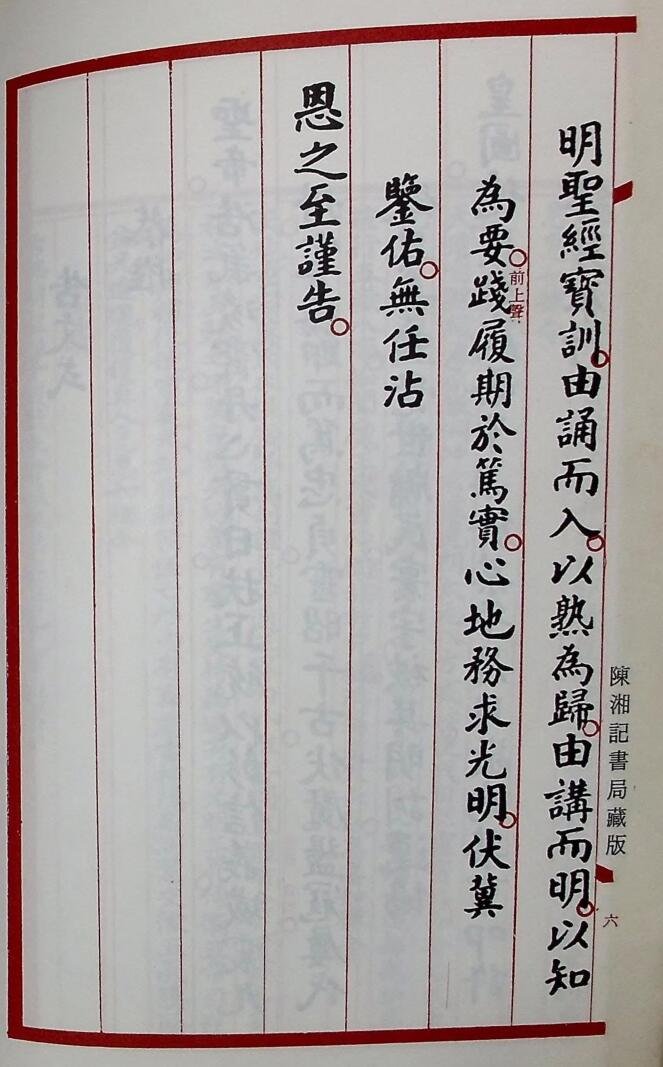 明聖經寶訓。由誦而入。以熟為歸。由講而明。以知
為要。踐前上聲履期於篤實。心地務求光明。伏冀
鑒佑。無任沾
恩之至謹告。
陳湘記書局藏版
六